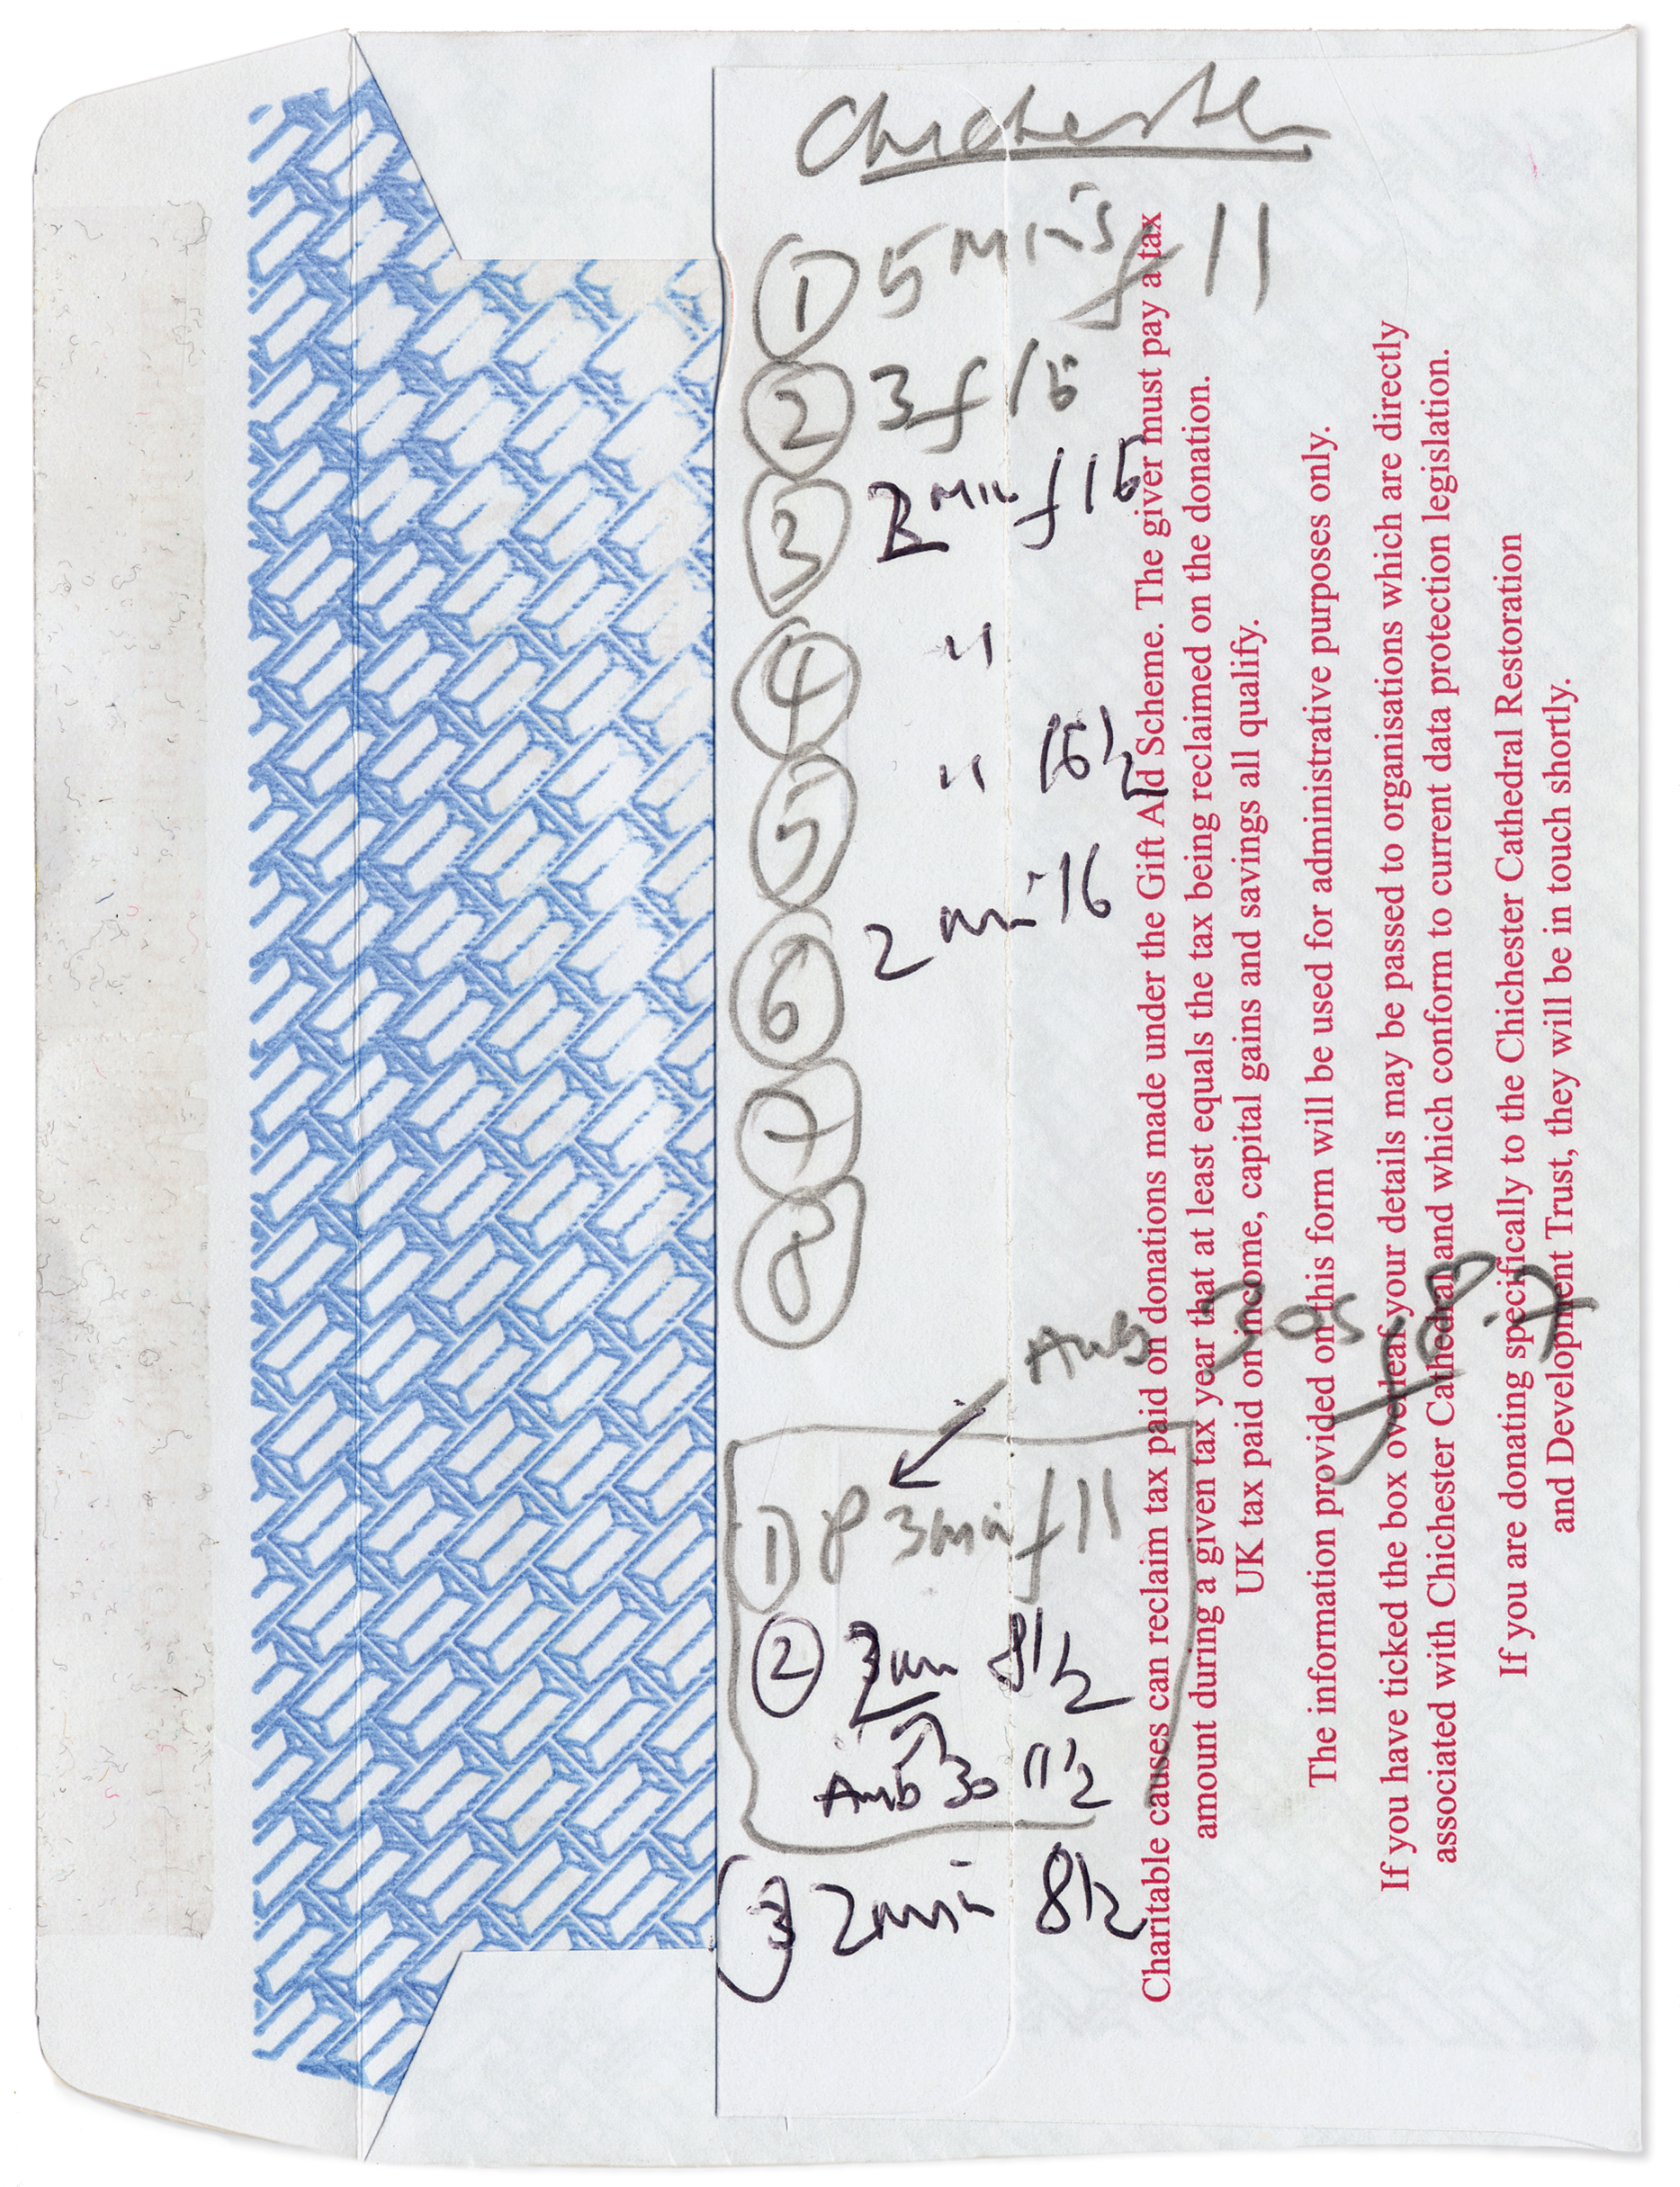 Chichester
① 5 mins f 11
② 3 f 16
③ 2 min f 16
④ "
⑤ " 16½
⑥ 2 min 16
⑦
⑧
Amb 30s f 8.7
① 8 3 min f 11
② 2 min 8½
Amb 30 11½
③ 2 min 8½
Charitable causes can reclaim tax paid on donations made under the Gift Aid Scheme. The giver must pay a tax
amount during a given tax year that at least equals the tax being reclaimed on the donation.
UK tax paid on income, capital gains and savings all qualify.
The information provided on this form will be used for administrative purposes only.
If you have ticked the box overleaf your details may be passed to organisations which are directly
associated with Chichester Cathedral and which conform to current data protection legislation.
If you are donating specifically to the Chichester Cathedral Restoration
and Development Trust, they will be in touch shortly.